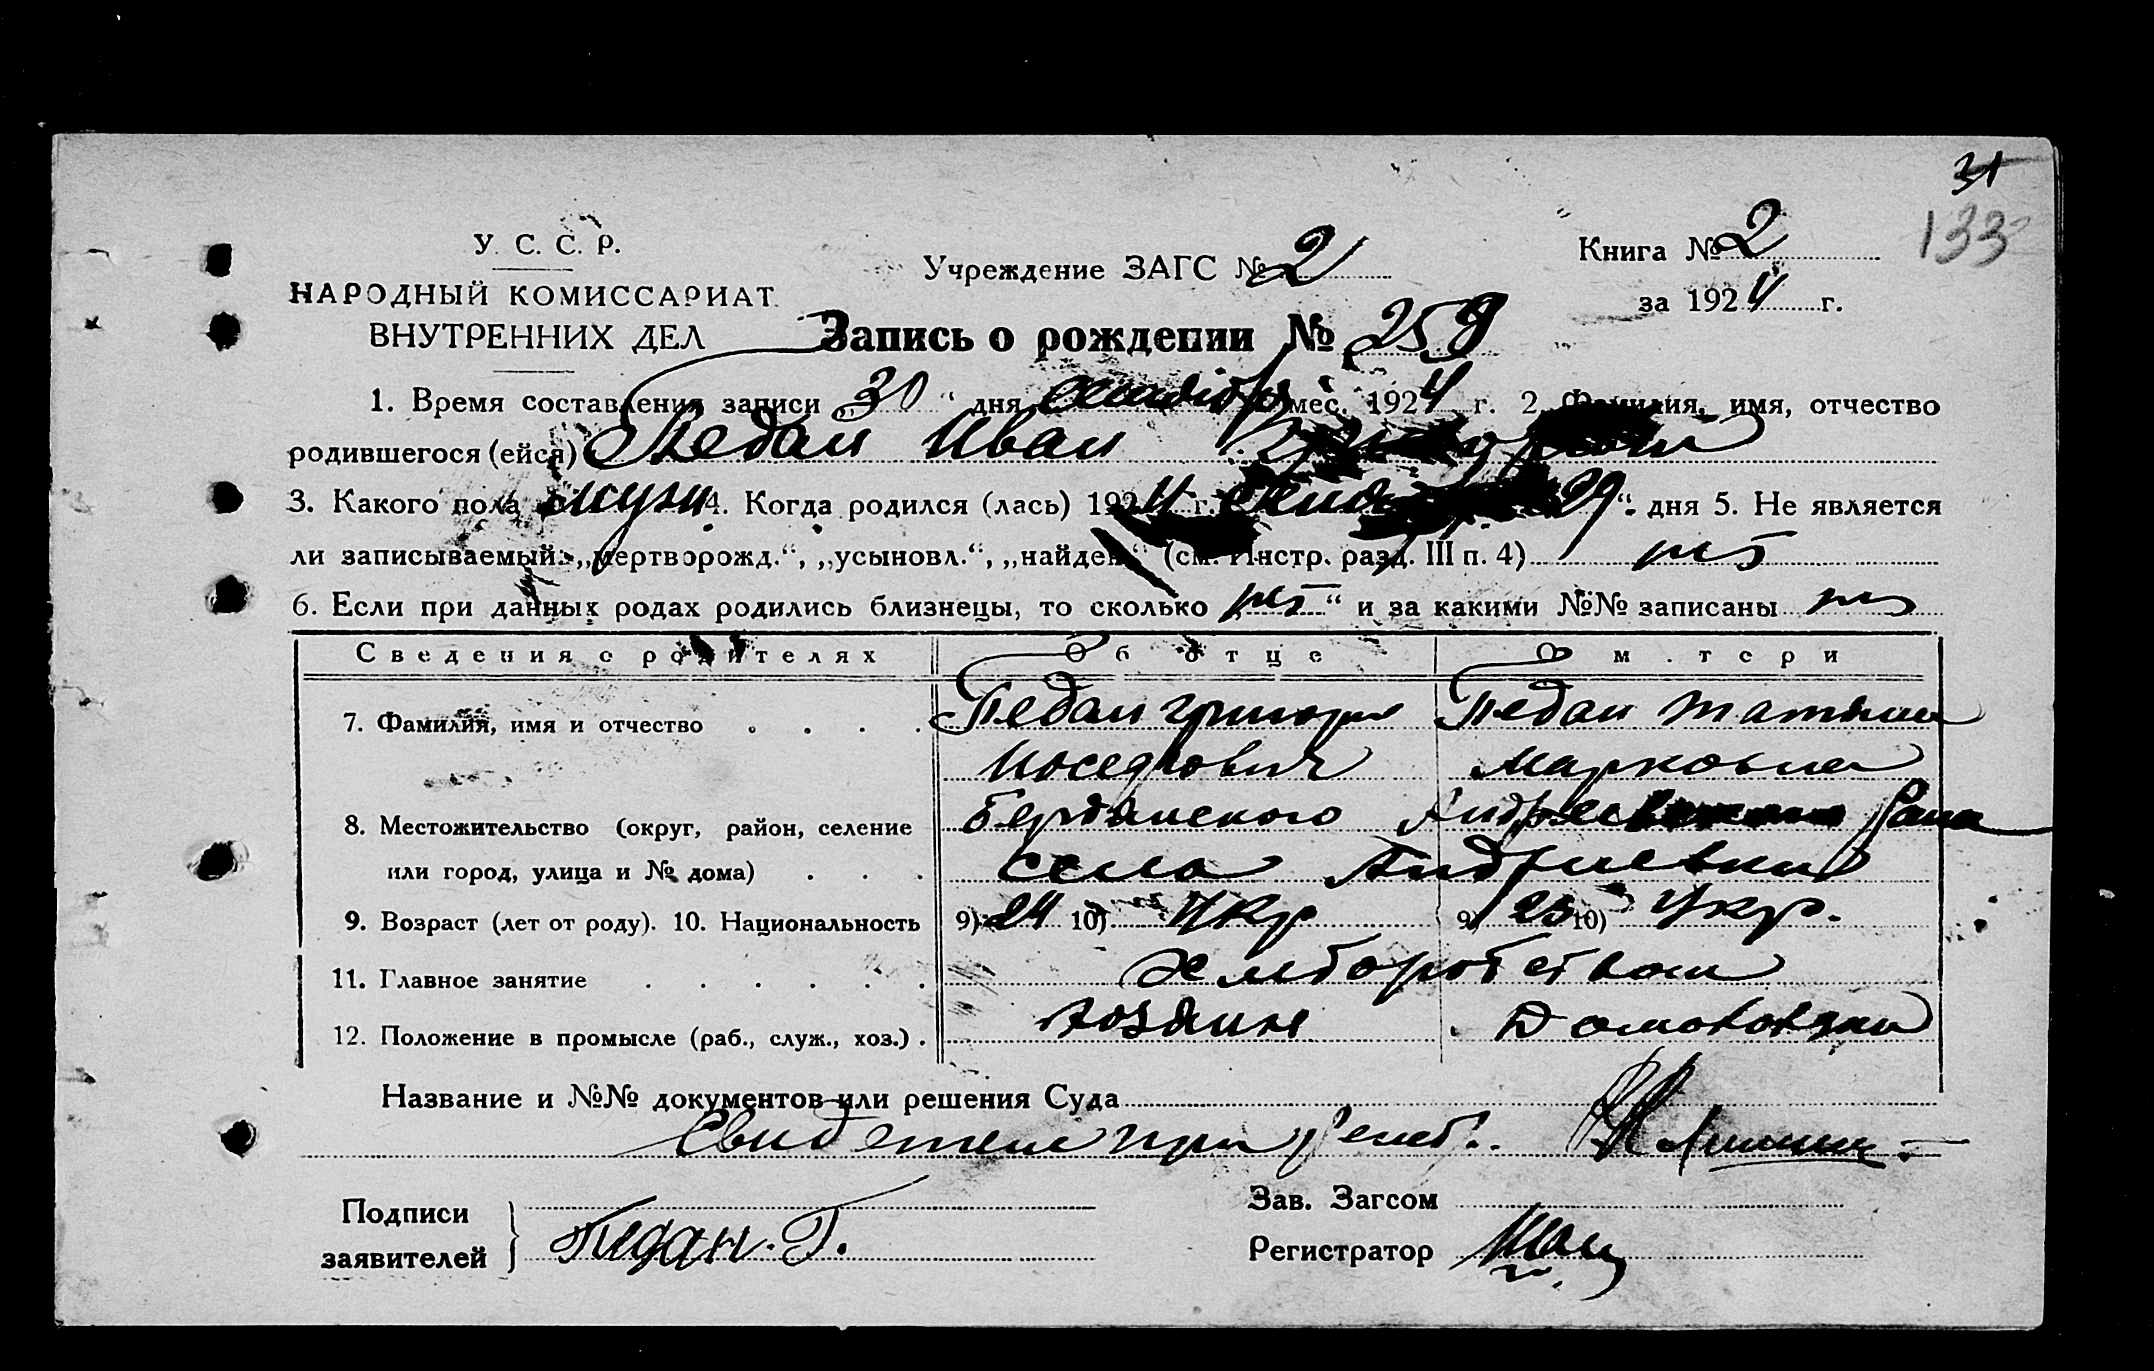 31
133
У. С. С. Р.
НАРОДНЫЙ КОМИССАРИАТ
ВНУТРЕННИХ ДЕЛ
Учреждение ЗАГС № 2
Книга № 2
за 1924 г.
Запись о рождении № 259
1. Время составления записи „30“ дня мес. 1924 г. 2. Фамилия, имя, отчество
родившегося (ейся) Педан Иван
3. Какого пола муж. 4. Когда родился (лась) 1924 г. 29“ дня 5. Не является
ли записываемый: „мертворожд.“, „усыновл.“, „найден“ (см. Инстр. разд. III п. 4) нет
6. Если при данных родах родились близнецы, то сколько нет“ и за какими №№ записаны нет
Сведения о родителях Об отце О матери
7. Фамилия, имя и отчество . . . . Педан Григорий Педан Татьяна
Иосефович Марковна
8. Местожительство (округ, район, селение Бердянского Андреевского Рана
или город, улица и № дома) . . . села Андриевки
9. Возраст (лет от роду). 10. Национальность 9) 24 10) Укр 9) 23 10) Укр.
11. Главное занятие . . . . . . Хлеборобством
12. Положение в промысле (раб., служ., хоз.) . хозяин
Название и №№ документов или решения Суда
Подписи
заявителей
Педан. Г.
Зав. Загсом
Регистратор